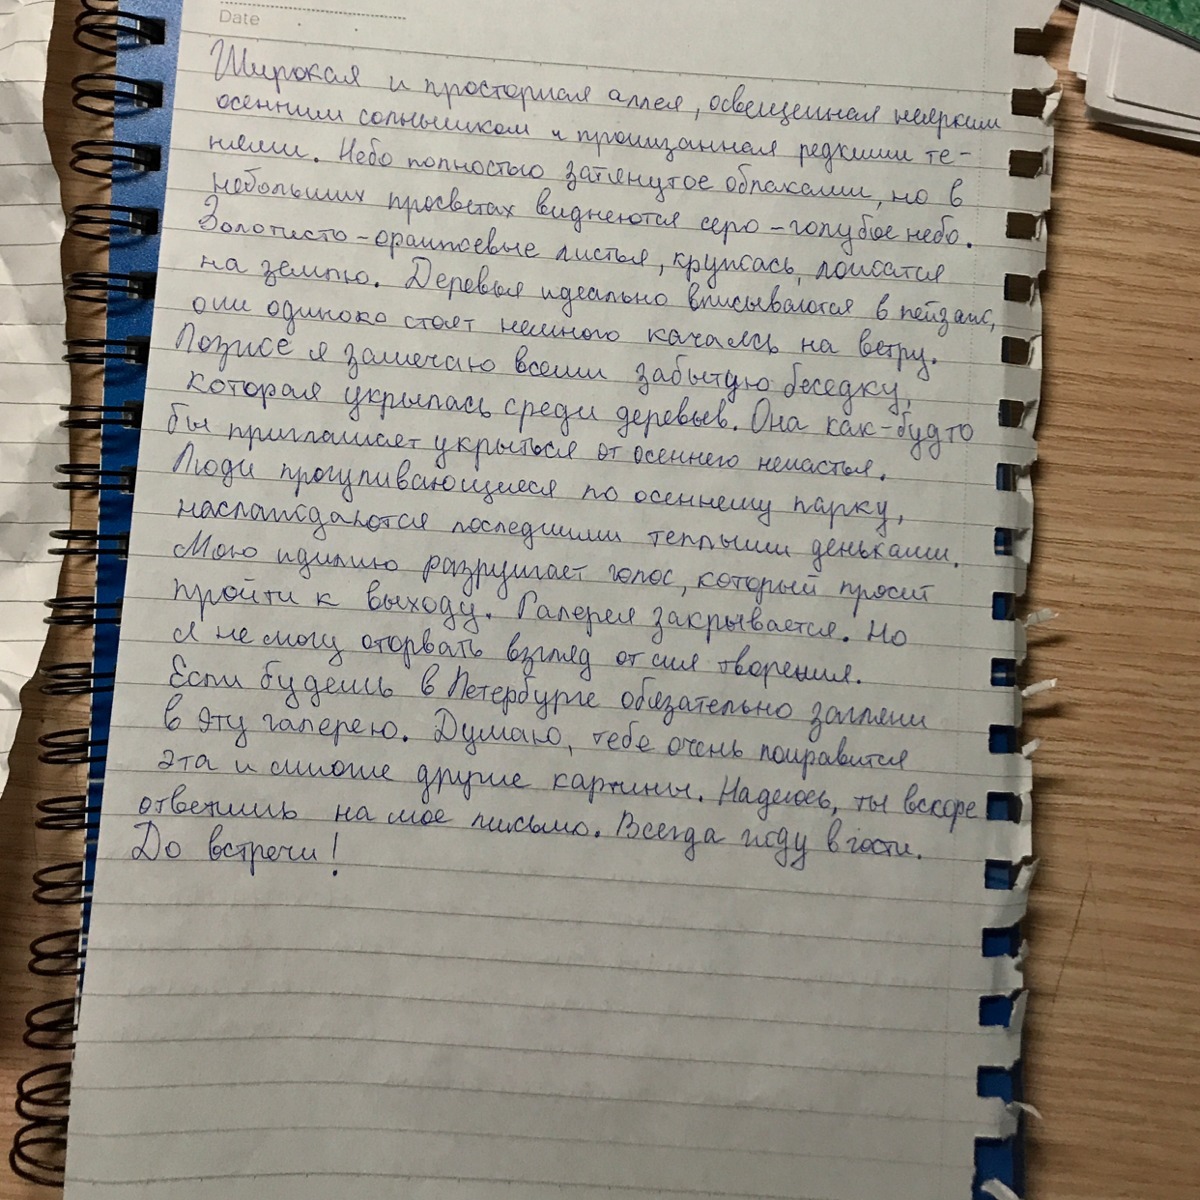 Date
Широкая и просторная аллея, освещенная неярким
осенним солнышком и пронизанная редкими те-
нями. Небо полностью затянутое облаками, но в
небольших просветах виднеются серо-голубое небо.
Золотисто-оранжевые листья, кружась, ложатся
на землю. Деревья идеально вписываются в пейзаж,
они одиноко стоят немного качаясь на ветру.
Позже я замечаю всеми забытую беседку,
которая укрылась среди деревьев. Она как-будто
бы приглашает укрыться от осеннего ненастья.
Люди прогуливающиеся по осеннему парку,
наслаждаются последними теплыми деньками.
Мою идилию разрушает голос, который просит
пройти к выходу. Галерея закрывается. Но
я не могу оторвать взгляд от сия творения.
Если будешь в Петербурге обязательно загляни
в эту галерею. Думаю, тебе очень понравится
эта и многие другие картины. Надеюсь, ты вскоре
ответишь на мое письмо. Всегда жду в гости.
До встречи!